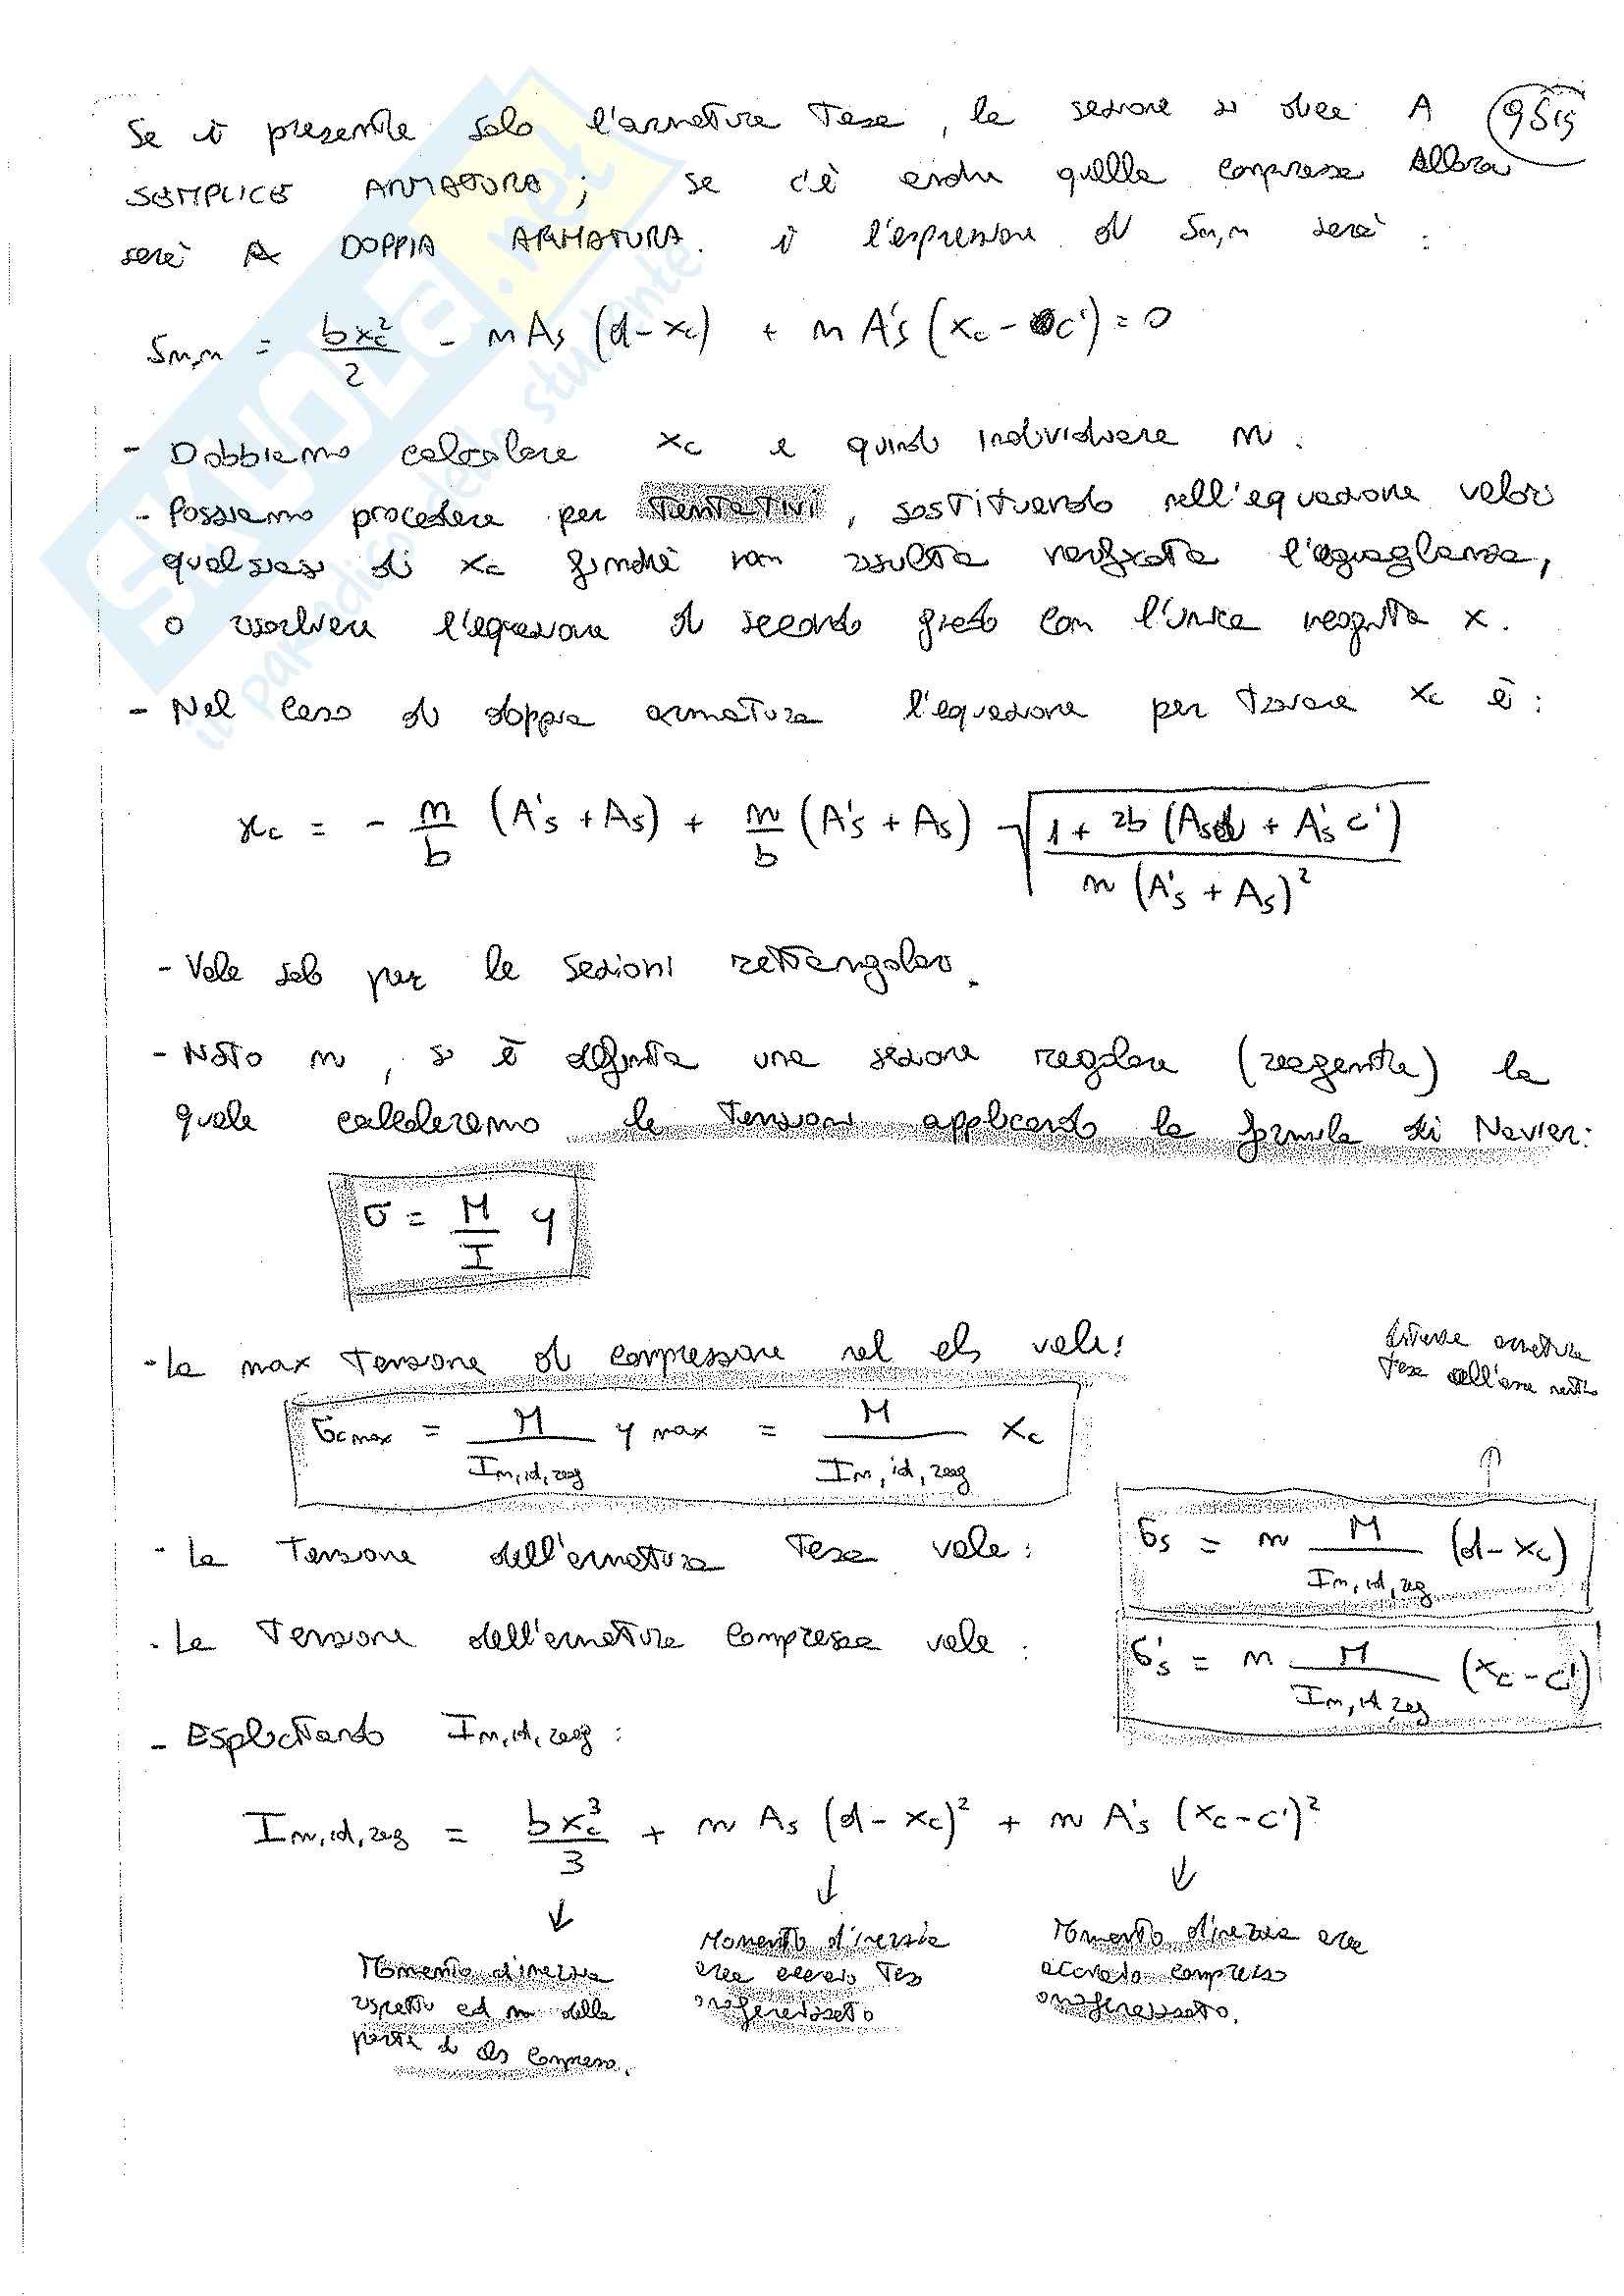 Se è presente solo l'armatura tesa, la sezione si dice A
SEMPLICE ARMATURA; se c'è anche quella compressa Allora
sarà A DOPPIA ARMATURA. è l'espressione di Sn,n sarà:
Sn,n = bxc²/2 - nAs (d-xc) + nA's (xc - c') = 0
- Dobbiamo calcolare xc e quindi individuare n.
- Possiamo procedere per tentativi, sostituendo nell'equazione valori
qualsiasi di xc finchè non risulta verificata l'eguaglianza,
o risolvere l'equazione di secondo grado con l'unica incognita x.
- Nel caso di doppia armatura l'equazione per trovare xc è:
xc = - n/b (A's + As) + n/b (A's + As) √(1 + 2b (Asd + A's c') / n (A's + As)²)
- Vale solo per le sezioni rettangolari.
- Noto n, si è definita una sezione regolare (reagente) la
quale calcoleremo le tensioni applicando la formula di Navier:
σ = M/I y
- La max tensione di compressione nel cls vale:
distanza armatura
tesa dall'asse neutro
σcmax = M/In,id,reag y max = M/In,id,reag xc
- La tensione dell'armatura tesa vale: σs = n M/In,id,reag (d-xc)
- La tensione dell'armatura compressa vale: σ's = n M/In,id,reag (xc-c')
- Esplicitando In,id,reag:
In,id,reag = bxc³/3 + n As (d-xc)² + n A's (xc-c')²
Momento d'inerzia
rispetto ad n della
parte di cls compressa.
Momento d'inerzia
area acciaio teso
omogeneizzato
Momento d'inerzia area
acciaio compresso
omogeneizzato.
SKUOLA.net
il paradiso dello studente